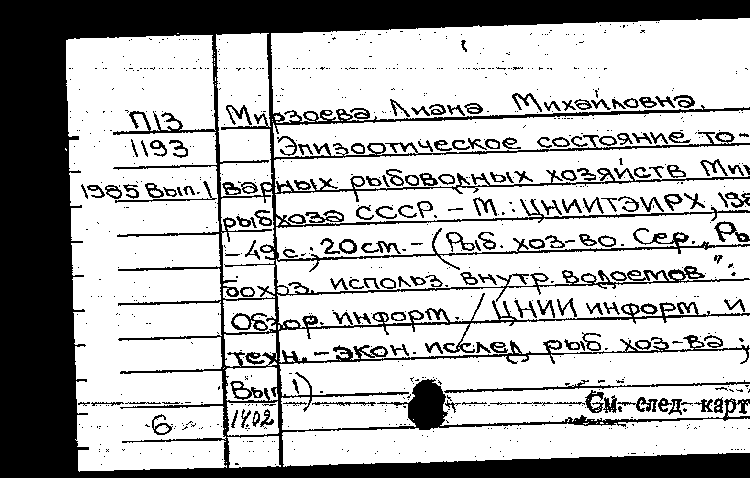 П13 Мирзоева, Лиана Михайловна.
1193 Эпизоотическое состояние то-
1985 Вып. 1 варных рыбоводных хозяйств Мин
рыбхоза СССР. – М.: ЦНИИТЭИРХ, 198
– 49 с.; 20 см. – (Рыб. хоз-во. Сер. „Ры
бохоз. использ. внутр. водоемов":
Обзор. информ. / ЦНИИ информ. и
техн. – экон. исслед. рыб. хоз-ва;
Вып. 1).
6 1402 См. след. карт